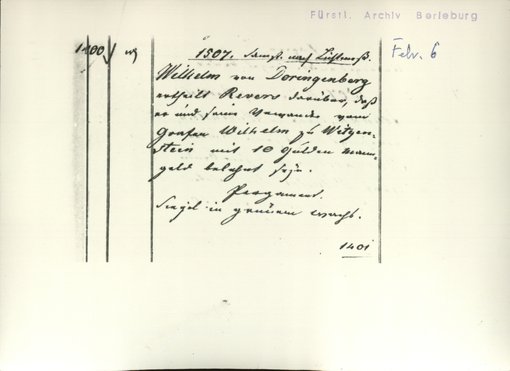 Fürstl. Archiv Berleburg
1400 1507. Sampt. nach Lichtmeß. Febr. 6
Wilhelm von Doringenberg
ertheilt Revers darüber, daß
er und seine Verwandte vom
Grafen Wilhelm zu Witgen-
stein mit 10 Gulden mann-
geld belehnt seÿn.
Pergament.
Siegel in grünem Wachs.
1401